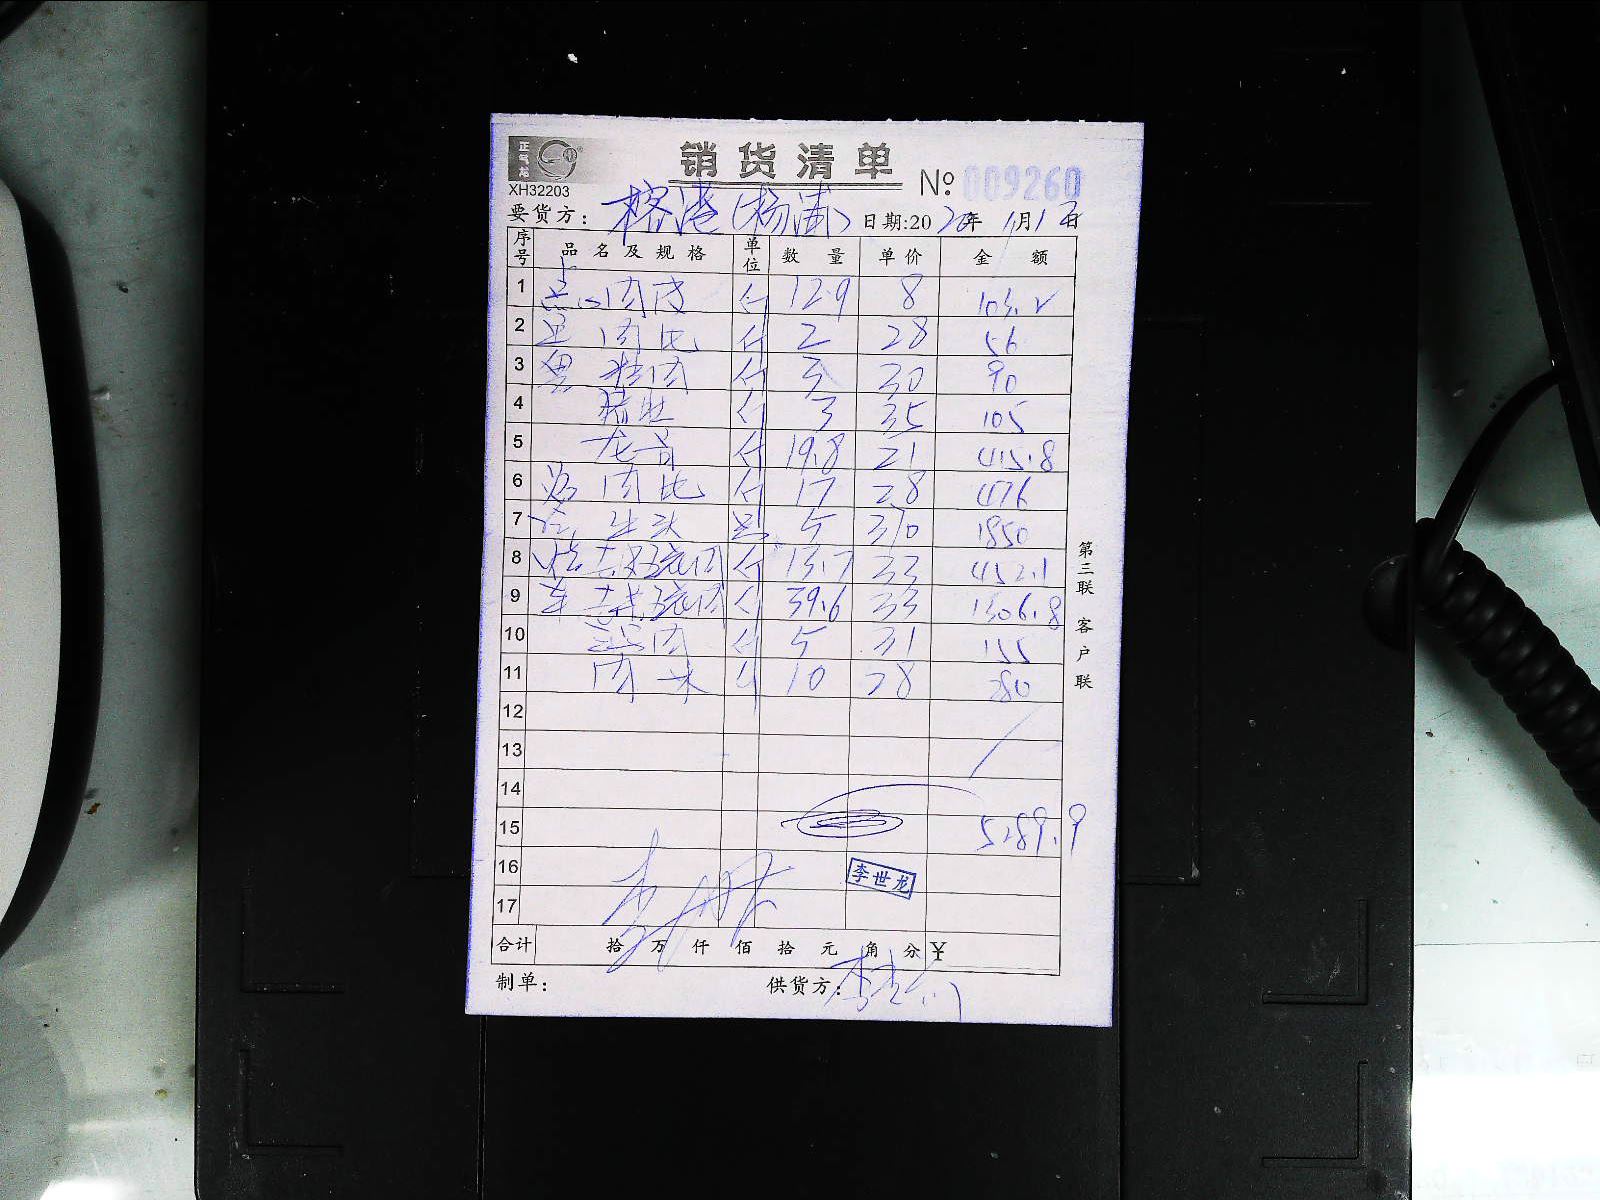 正气龙
销货清单
XH32203
№ 009260
要货方: 榕港(杨浦) 日期:2020年11月1日
序号 品名及规格 单位 数量 单价 金额
1 点心肉皮 斤 12.9 8 103.2
2 肉 斤 2 28 56
3 肉 斤 3 30 90
4 猪肚 斤 3 35 105
5 龙骨 斤 19.8 21 415.8
6 肉 斤 17 28 476
7 5 370 1850
8 肉 斤 13.7 33 452.1
9 肉 斤 39.6 33 1306.8
10 肉 斤 5 31 155
11 肉末 斤 10 28 280
12
13
14
15 5289.9
16 李世龙
17
合计 拾 万 仟 佰 拾 元 角 分 ¥
制单: 供货方:
第三联 客户联